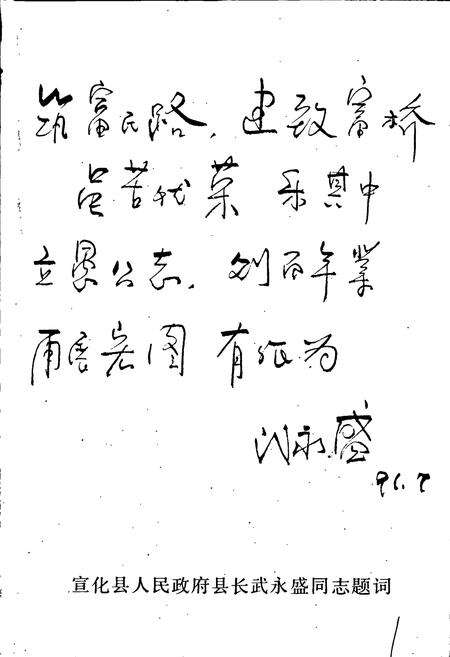 筑富民路，建致富桥
虽苦犹荣 乐其中
立愚公志，创百年业
再展宏图 有作为
武永盛
91.7
宣化县人民政府县长武永盛同志题词
1